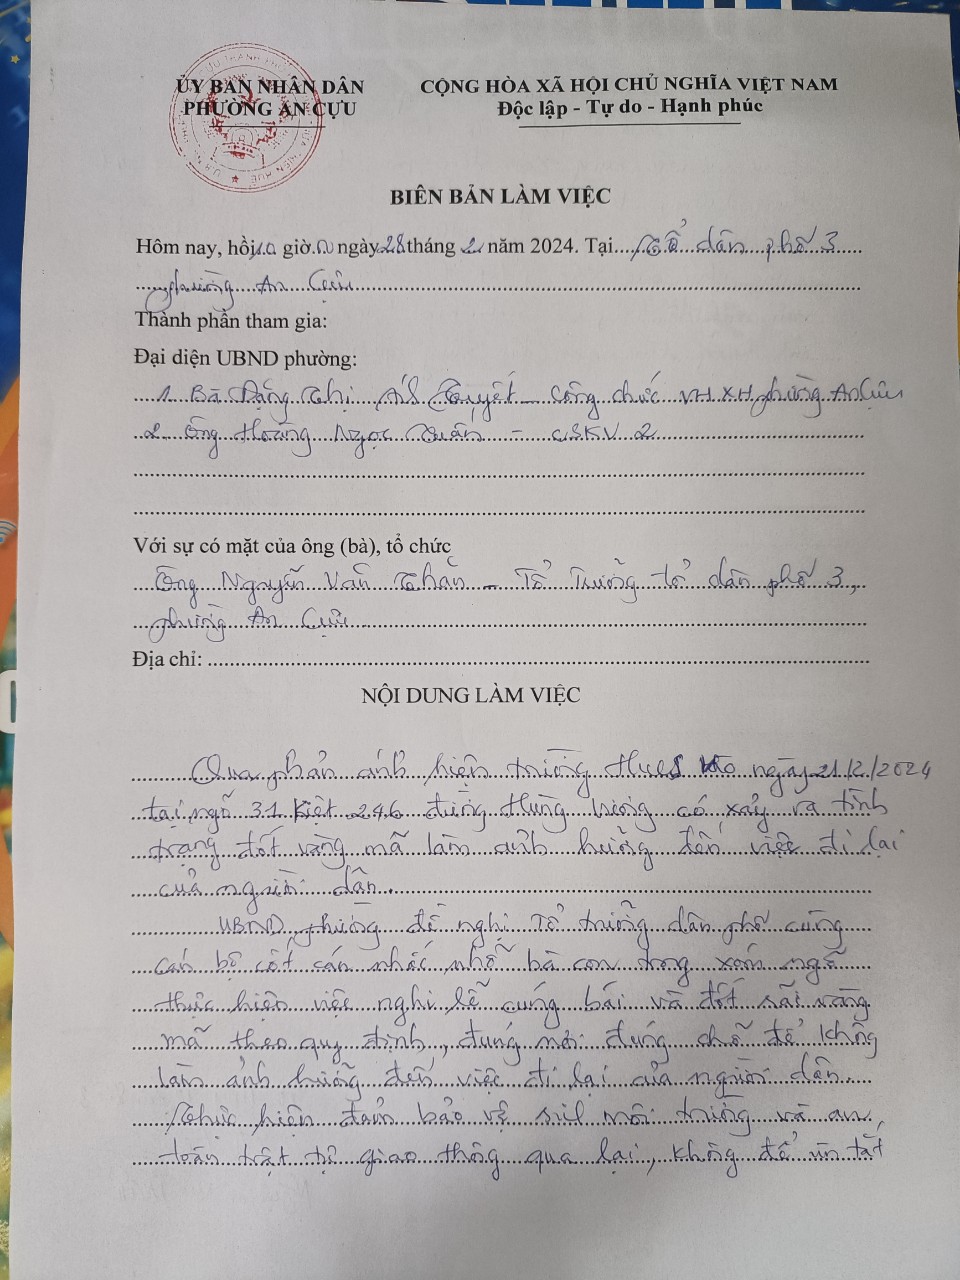 ỦY BAN NHÂN DÂN
PHƯỜNG AN CỰU
CỘNG HÒA XÃ HỘI CHỦ NGHĨA VIỆT NAM
Độc lập - Tự do - Hạnh phúc
BIÊN BẢN LÀM VIỆC
Hôm nay, hồi 10 giờ 0 ngày 28 tháng 2 năm 2024. Tại Tổ dân phố 3
phường An Cựu
Thành phần tham gia:
Đại diện UBND phường:
1. Bà Đặng Thị Tuyết - công chức VH.XH phường An Cựu
2. Ông Hoàng Ngọc Tuấn - CSKV 2
Với sự có mặt của ông (bà), tổ chức
Ông Nguyễn Văn - Tổ Trưởng tổ dân phố 3,
phường An Cựu
Địa chỉ:
NỘI DUNG LÀM VIỆC
Qua phản ánh hiện trường HueS vào ngày 21/2/2024
tại ngõ 31 kiệt 246 đường Hùng Vương có xảy ra tình
trạng đốt vàng mã làm ảnh hưởng đến việc đi lại
của người dân.
UBND phường đề nghị Tổ trưởng dân phố cùng
cán bộ cốt cán nhắc nhở bà con trong xóm ngõ
thực hiện việc nghi lễ cúng bái và đốt rãi vàng
mã theo quy định, đúng nơi đúng chỗ để không
làm ảnh hưởng đến việc đi lại của người dân
Thực hiện đảm bảo vệ sinh môi trường và an
toàn trật tự giao thông qua lại, không để ùn tắt